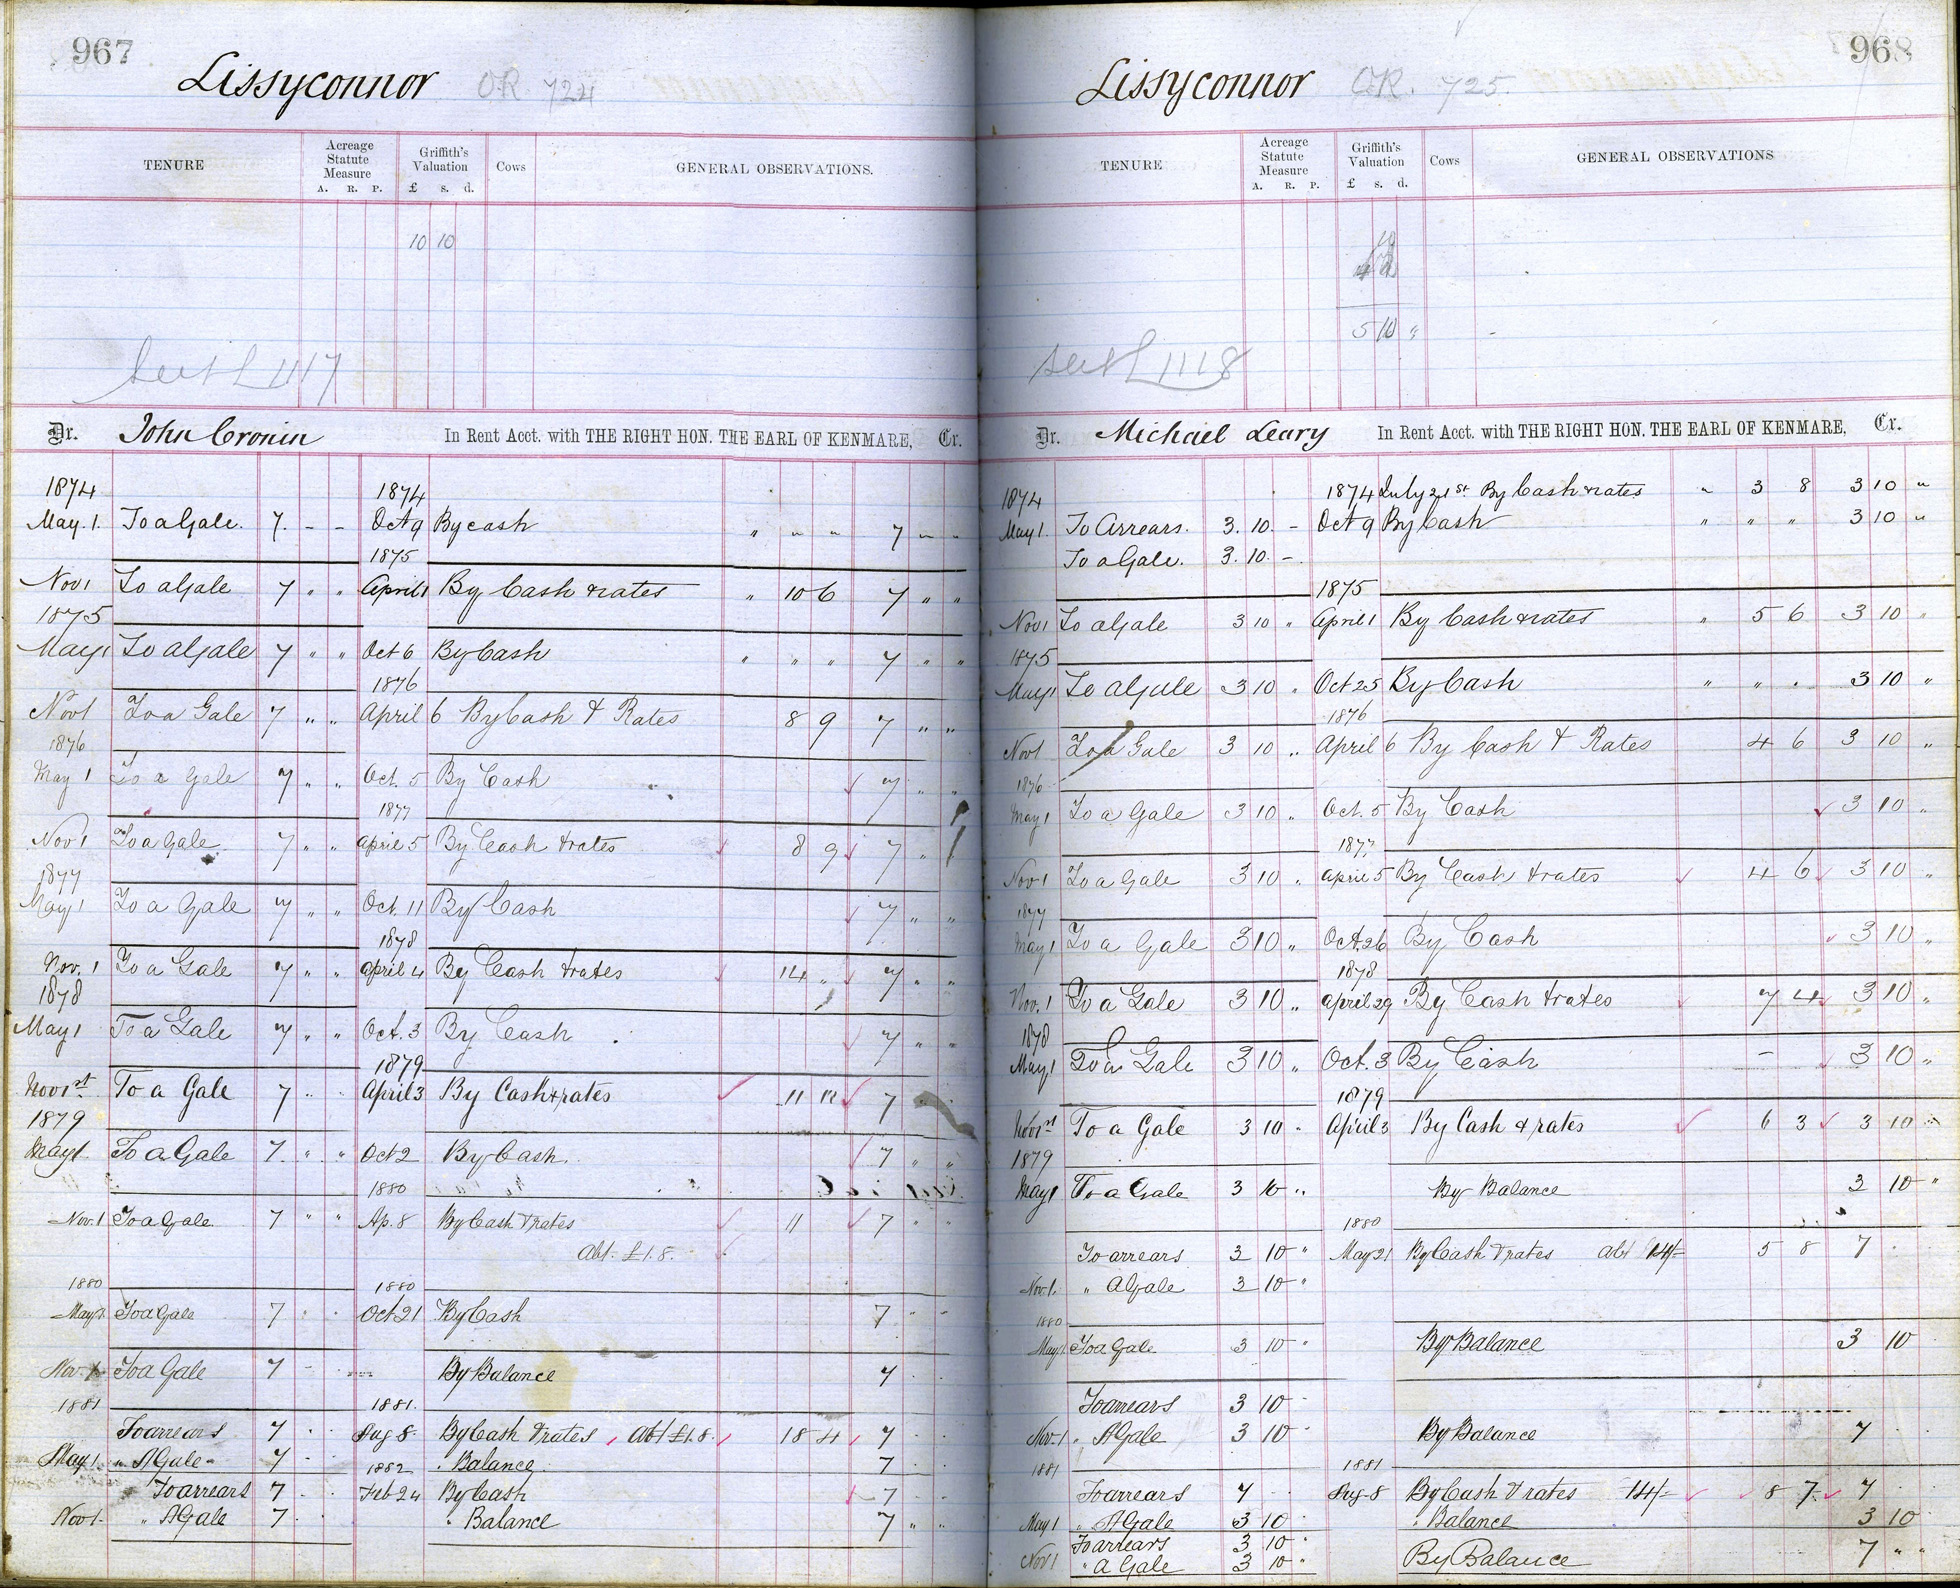 967
Lissyconnor OR 724
TENURE Acreage Statute Measure A. R. P. Griffith's Valuation £ s. d. Cows GENERAL OBSERVATIONS.
10 10
1117
Dr. John Cronin In Rent Acct. with THE RIGHT HON. THE EARL OF KENMARE, Cr.
1874 1874
May 1. To a Gale. 7. - - Oct 9 By cash " " " 7 " "
1875
Nov 1 To a Gale 7 " " April 1 By Cash & rates " 10 6 7 " "
1875
May 1 To a Gale 7 " " Oct 6 By Cash " " " 7 " "
1876
Nov 1 To a Gale 7 " " April 6 By Cash & Rates 8 9 7 " "
1876
May 1 To a Gale 7 " " Oct. 5 By Cash 7 " "
1877
Nov 1 To a Gale 7 " " April 5 By Cash & rates 8 9 7 "
1877
May 1 To a Gale 7 " " Oct. 11 By Cash 7 " "
1878
Nov. 1 To a Gale 7 " " April 4 By Cash & rates 14 " 7 " "
1878
May 1 To a Gale 7 " " Oct. 3 By Cash 7 " "
1879
Nov 1st To a Gale 7 " " April 3 By Cash & rates 11 7
1879
May 1 To a Gale 7 " " Oct 2 By Cash. 7 " "
1880
Nov. 1 To a Gale 7 " " Ap. 8 By Cash & rates 11 7 " "
Abt. £1.8.
1880 1880
May 1 To a Gale 7 " " Oct 21 By Cash 7 " "
Nov. 1 To a Gale 7 - - By Balance 7 " "
1881 1881.
To arrears 7 Aug 8 By Cash & rates Abt £1.8. 18 4 7
May 1. " A Gale 7 1882 " Balance 7
To arrears 7 Feb 24 By Cash 7
Nov 1. " A Gale 7 " Balance 7 " "
968
Lissyconnor OR. 725.
TENURE Acreage Statute Measure A. R. P. Griffith's Valuation £ s. d. Cows GENERAL OBSERVATIONS
5 10 "
1118
Dr. Michael Leary In Rent Acct. with THE RIGHT HON. THE EARL OF KENMARE, Cr.
1874 1874 July 21st By Cash & rates " 3 8 3 10 "
May 1. To Arrears. 3. 10. - Oct 9 By Cash " " " 3 10 "
To a Gale. 3. 10. -
1875
Nov 1 To a Gale 3 10 " April 1 By Cash & rates " 5 6 3 10 "
1875
May 1 To a Gale 3 10 " Oct 25 By Cash " " " 3 10 "
1876
Nov 1 To a Gale 3 10 " April 6 By Cash & Rates 4 6 3 10 "
1876
May 1 To a Gale 3 10 " Oct. 5 By Cash 3 10 "
1877
Nov 1 To a Gale 3 10 " April 5 By Cash & rates 4 6 3 10 "
1877
May 1 To a Gale 3 10 " Oct. 26 By Cash 3 10 "
1878
Nov. 1 To a Gale 3 10 " April 29 By Cash & rates 7 4 3 10 "
1878
May 1 To a Gale 3 10 " Oct. 3 By Cash - 3 10 "
1879
Nov 1st To a Gale 3 10 " April 3 By Cash & rates 6 3 3 10 "
1879
May 1 To a Gale 3 10 " By Balance 3 10 "
1880
To arrears 3 10 " May 21 By Cash & rates abt 14/= 5 8 7
Nov. 1. " A Gale 3 10 "
1880
May 1. To a Gale 3 10 " By Balance 3 10
To arrears 3 10 "
Nov. 1 " A Gale 3 10 " By Balance 7
1881 1881
To arrears 7 Aug 8 By Cash & rates 14/= 8 7 7
May 1 " A Gale 3 10 " Balance 3 10
To arrears 3 10 "
Nov 1 " A Gale 3 10 " By Balance 7 " "